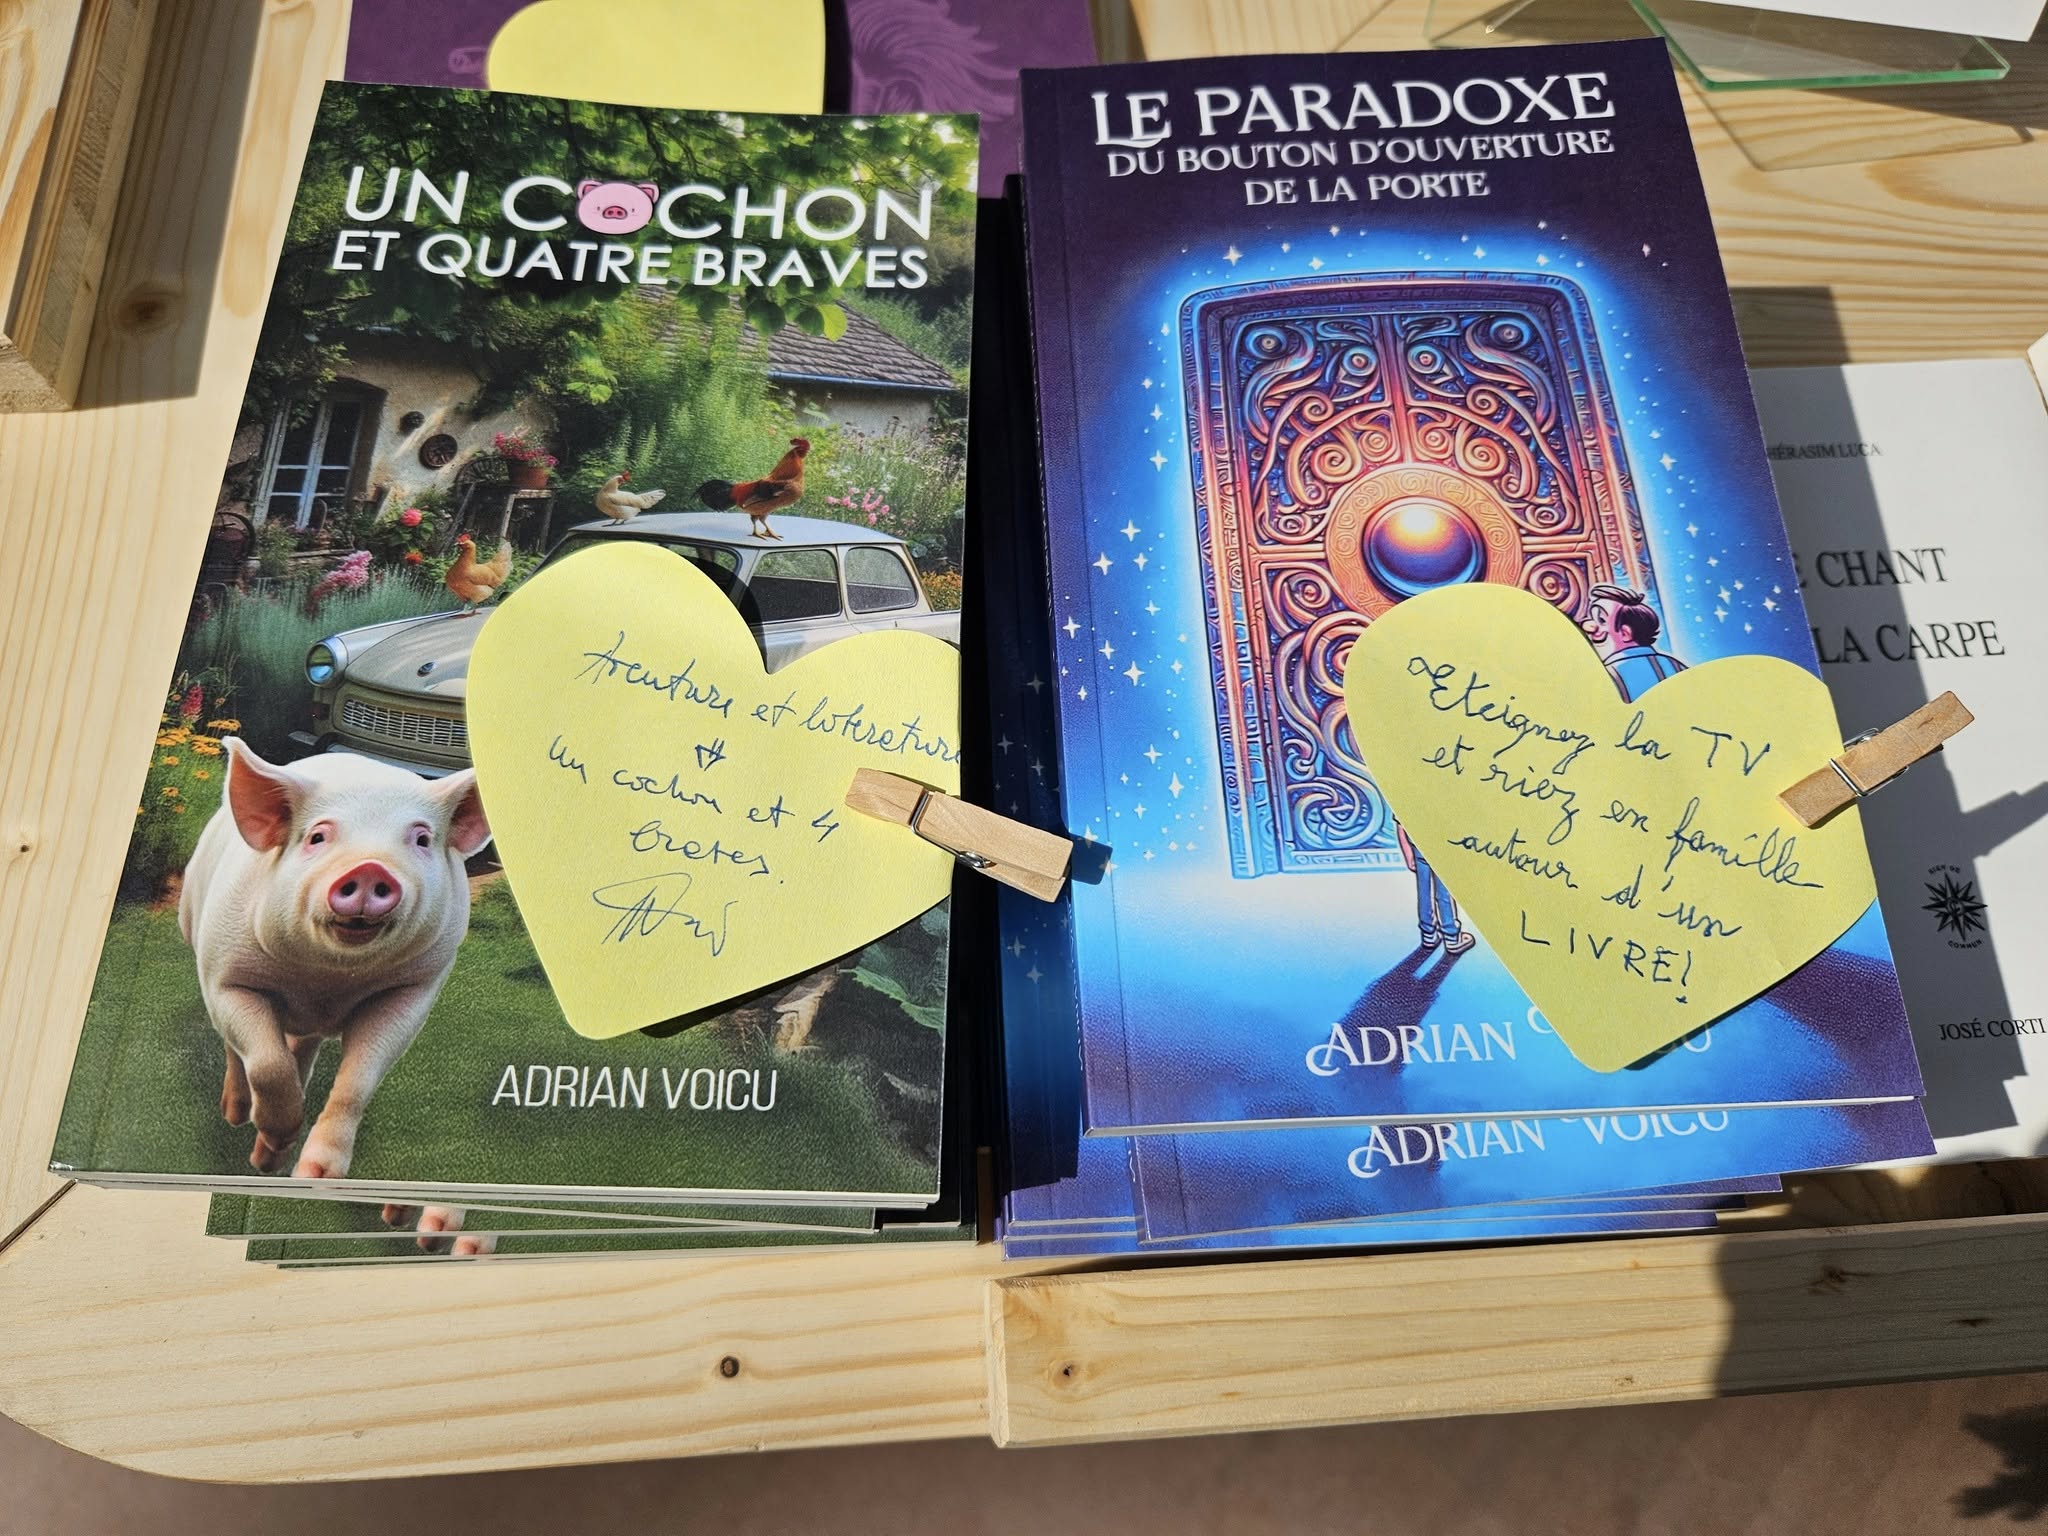 UN COCHON
ET QUATRE BRAVES
Aventure et literature
un cochon et 4
braves.
ADRIAN VOICU
LE PARADOXE
DU BOUTON D'OUVERTURE
DE LA PORTE
Eteignez la TV
et riez en famille
autour d'un
LIVRE!
ADRIAN
ADRIAN VOICU
HÉRASIM LUCA
CHANT
LA CARPE
BIEN DE
COMMUN
JOSÉ CORTI